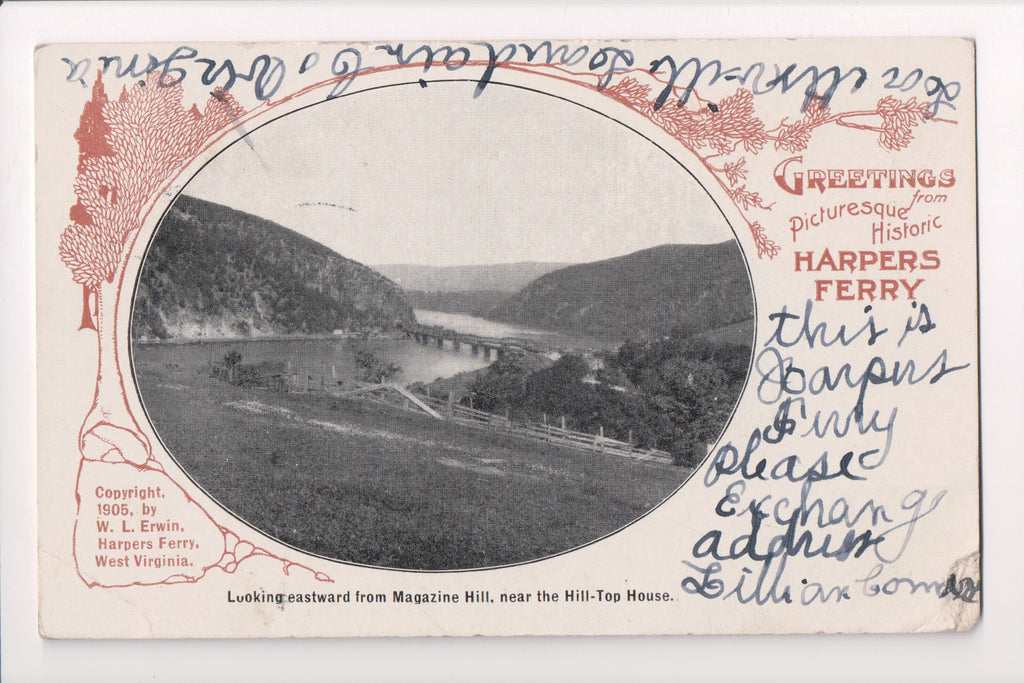 Lovittsville Loudain Co Virginia
GREETINGS
from
Picturesque
Historic
HARPERS
FERRY
this is
Harpers
Firry
please
Exchang
address
Lillian
Copyright,
1905, by
W. L. Erwin,
Harpers Ferry,
West Virginia.
Looking eastward from Magazine Hill, near the Hill-Top House.